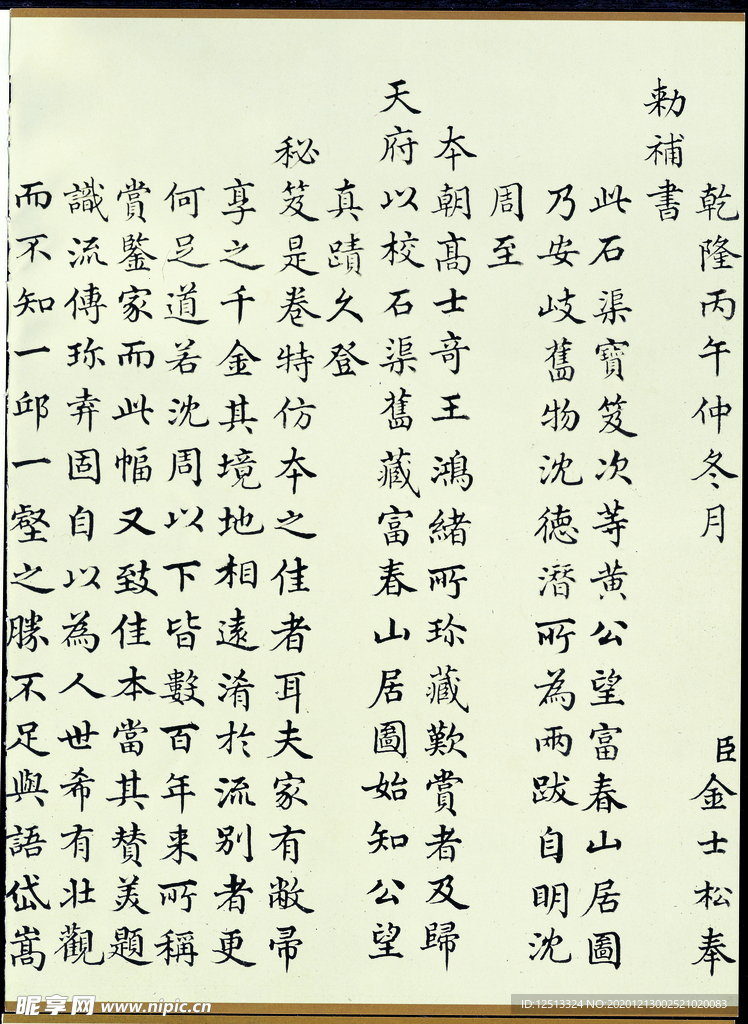 乾隆丙午仲冬月 臣金士松奉
勅補書
此石渠寶笈次等黃公望富春山居圖
乃安岐舊物沈德潛所為兩跋自明沈
周至
本朝高士奇王鴻緒所珍藏歎賞者及歸
天府以校石渠舊藏富春山居圖始知公望
真蹟久登
秘笈是卷特仿本之佳者耳夫家有敝帚
享之千金其境地相遠淆於流別者更
何足道若沈周以下皆數百年来所稱
賞鑒家而此幅又致佳本當其賛美題
識流傳珎弆固自以為人世希有壯觀
而不知一邱一壑之勝不足與語岱嵩
昵享网 www.nipic.cn
ID:12513324 NO:20201213002521020083